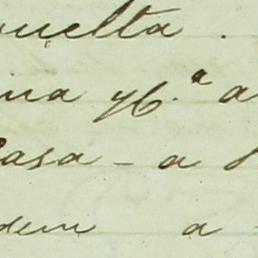 uelta .
na y6.ª a
Casa - a
dem a